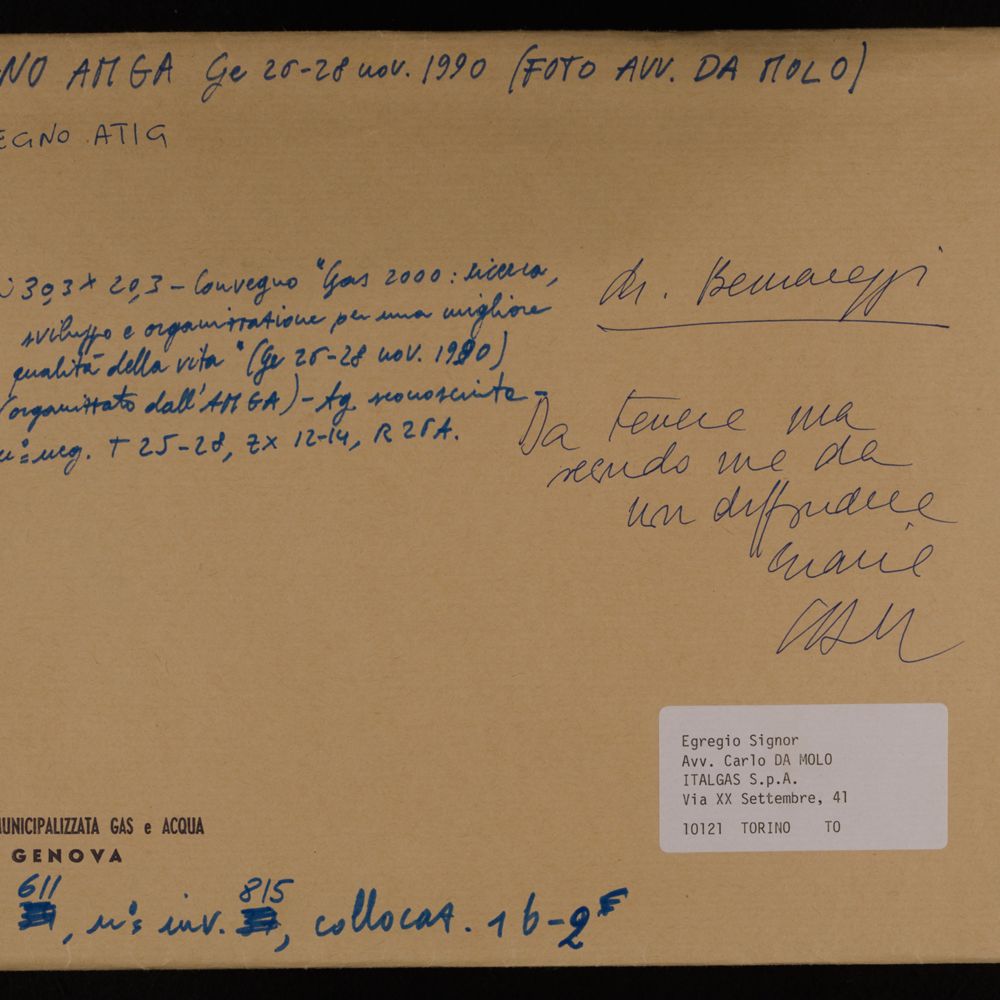 NO AMGA Ge 26-28 nov. 1990 (FOTO AVV. DA MOLO)
EGNO ATIG
30,3 x 20,3 - Convegno "Gas 2000: ricerca,
sviluppo e organizzazione per una migliore
qualità della vita" (Ge 26-28 nov. 1990)
organizzato dall'AMGA) - Ag. sconosciuta -
neg. T 25-28, ZX 12-14, R 26A.
Dr. Bemareggi
Da tenere ma
secondo me da
non diffondere
Grazie
Egregio Signor
Avv. Carlo DA MOLO
ITALGAS S.p.A.
Via XX Settembre, 41
10121 TORINO TO
MUNICIPALIZZATA GAS e ACQUA
GENOVA
611 815
, n° inv. , collocaz. 1b-2